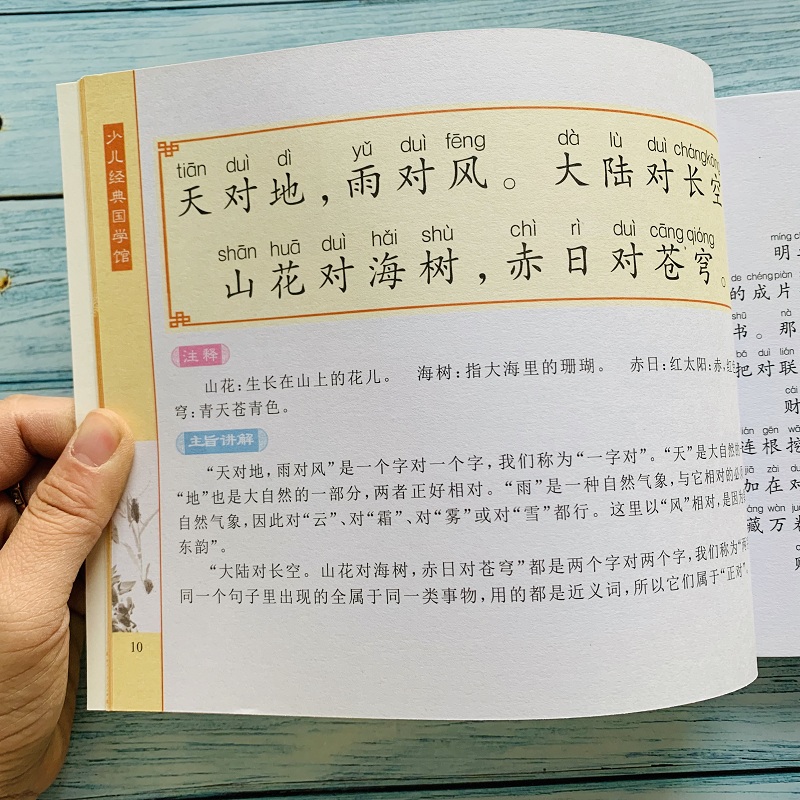 少儿经典国学馆
tiān duì dì yǔ duì fēng dà lù duì chángkōng
天对地，雨对风。大陆对长空
shān huā duì hǎi shù chì rì duì cāng qióng
山花对海树，赤日对苍穹。
注释
山花：生长在山上的花儿。 海树：指大海里的珊瑚。 赤日：红太阳；赤，红
穹：青天苍青色。
主旨讲解
“天对地，雨对风”是一个字对一个字，我们称为“一字对”。“天”是大自然的
“地”也是大自然的一部分，两者正好相对。“雨”是一种自然气象，与它相对的必
自然气象，因此对“云”、对“霜”、对“雾”或对“雪”都行。这里以“风”相对，是因
东韵”。
“大陆对长空。山花对海树，赤日对苍穹”都是两个字对两个字，我们称为“两
同一个句子里出现的全属于同一类事物，用的都是近义词，所以它们属于“正对”。
10
明
de chéng piàn
的成片
shū nà
书。那
bǎ duì lián
把对联
cái
财
lián gēn wā
连根挖
jiā zài duì
加在对
cáng wàn juàn
藏万卷